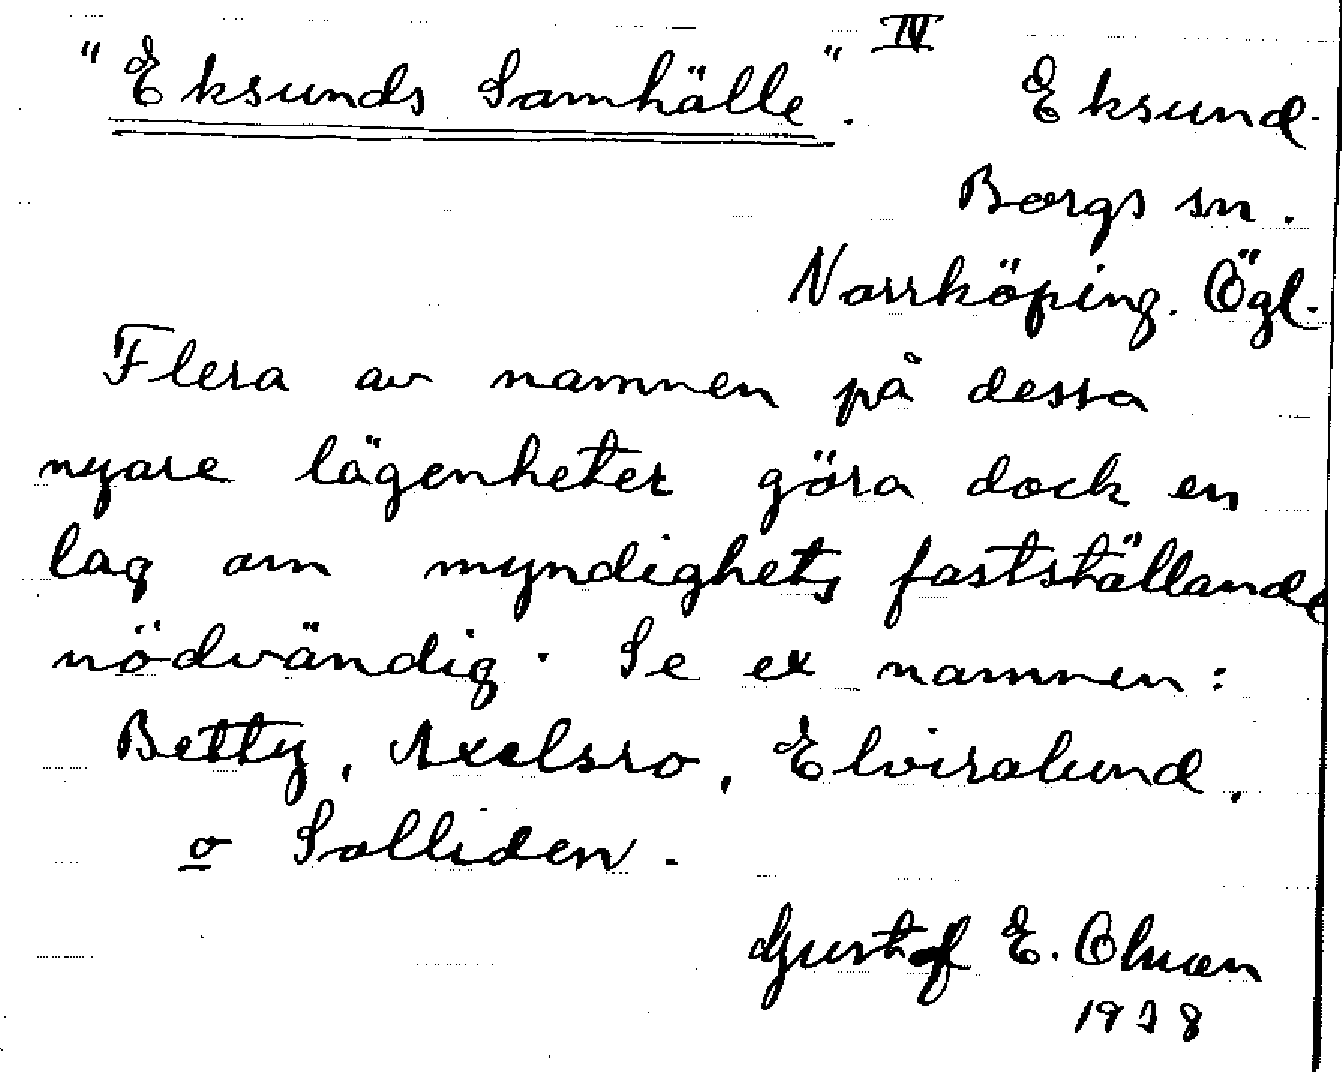 "Eksunds Samhälle". IV Eksund.
Borgs sn.
Norrköping. Ögl.
Flera av namnen på dessa
nyare lägenheter göra dock en
lag om myndighets fastställande
nödvändig. Se ex namnen:
Betty, Axelsro, Elviralund,
o Solliden.
Gustaf E. Ohman
1938